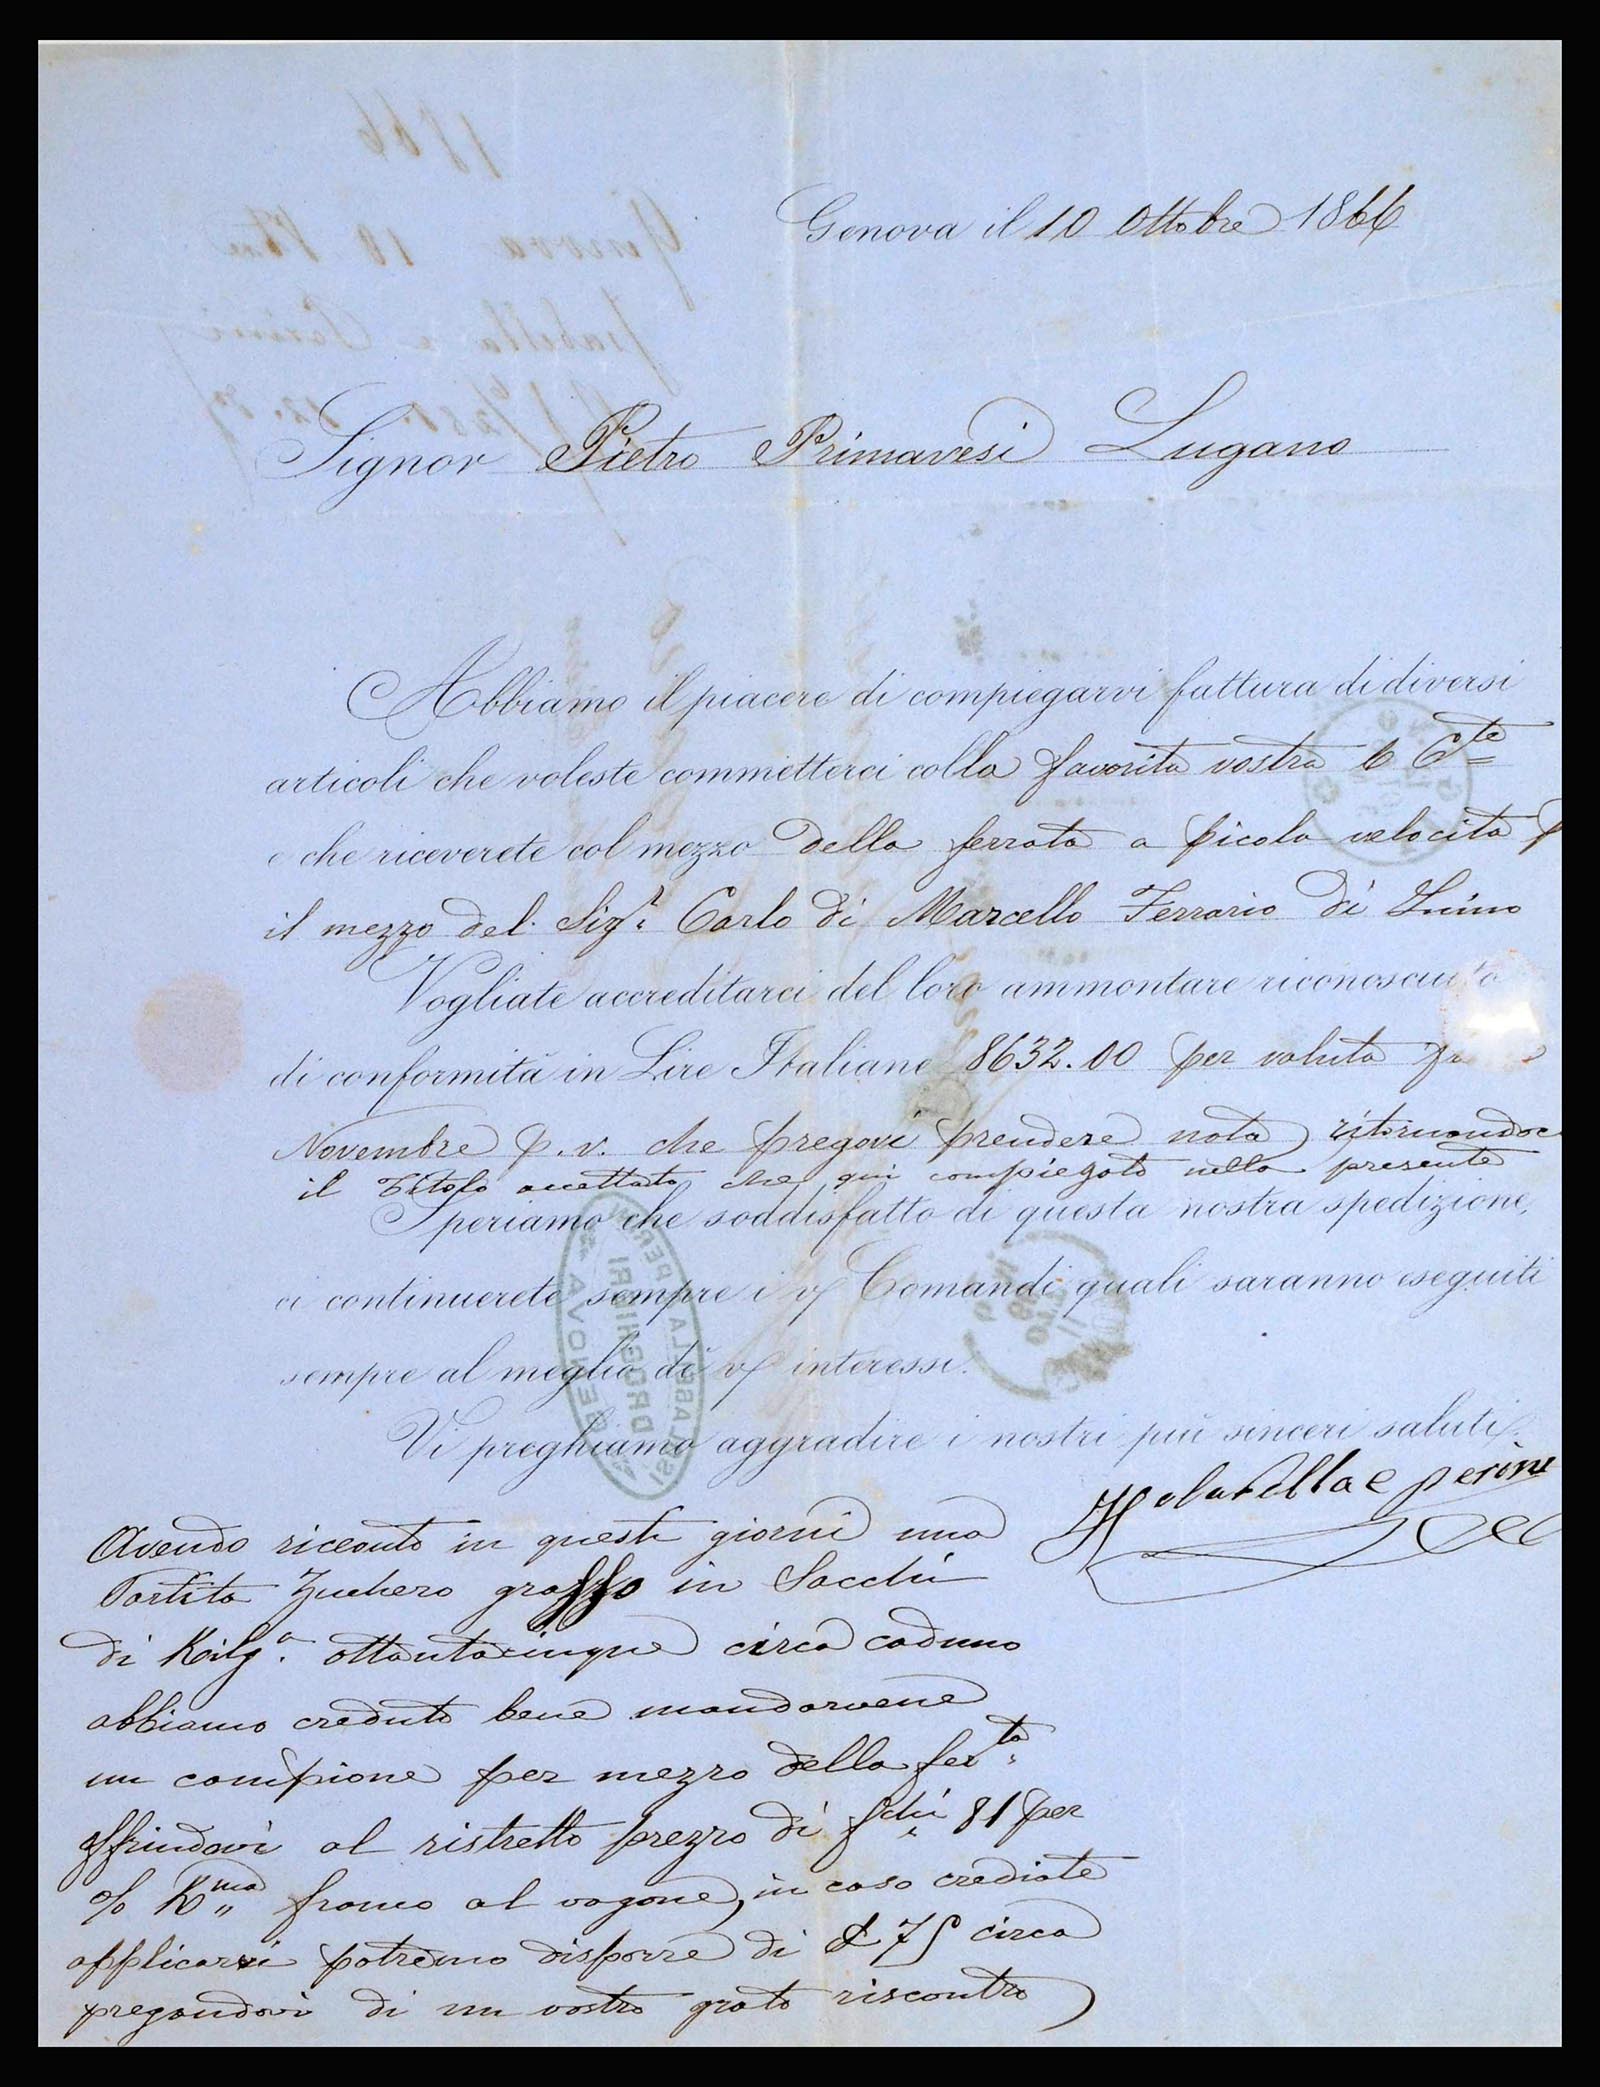 Genova il 10 Ottobre 1866
Signor Pietro Primavesi Lugano
Abbiamo il piacere di compiegarvi fattura di diversi
articoli che voleste commetterci colla favorita vostra 6 C.te
e che riceverete col mezzo della ferrata a picola velocita p
il mezzo del Sigr. Carlo di Marcello Ferrario di Luino
Vogliate accreditarci del loro ammontare riconosciuto
di conformità in Lire Italiane 8632.00 per valuta
Novembre p.v. che pregovi prendere nota, ritornandoc
il Titolo accettato che qui compiegato nella presente
Speriamo che soddisfatto di questa nostra spedizione,
ci continuerete sempre i v/ Comandi quali saranno eseguiti
sempre al meglio di v/ interessi.
Vi preghiamo aggradire i nostri più sinceri saluti.
Isolabella e Perini
Avendo riceouto in questi giorni una
Partita Zuchero grasso in Sacchi
di Kilg.a ottantacinque circa caduno
abbiamo creduto bene mandarvene
un campione per mezzo della fer.ta
offrindovi al ristretto prezzo di f.chi 81 per
% K.ma franco al vagone, in caso crediate
applicarvi potremo disporre di 75 circa
pregandovi di un vostro grato riscontro